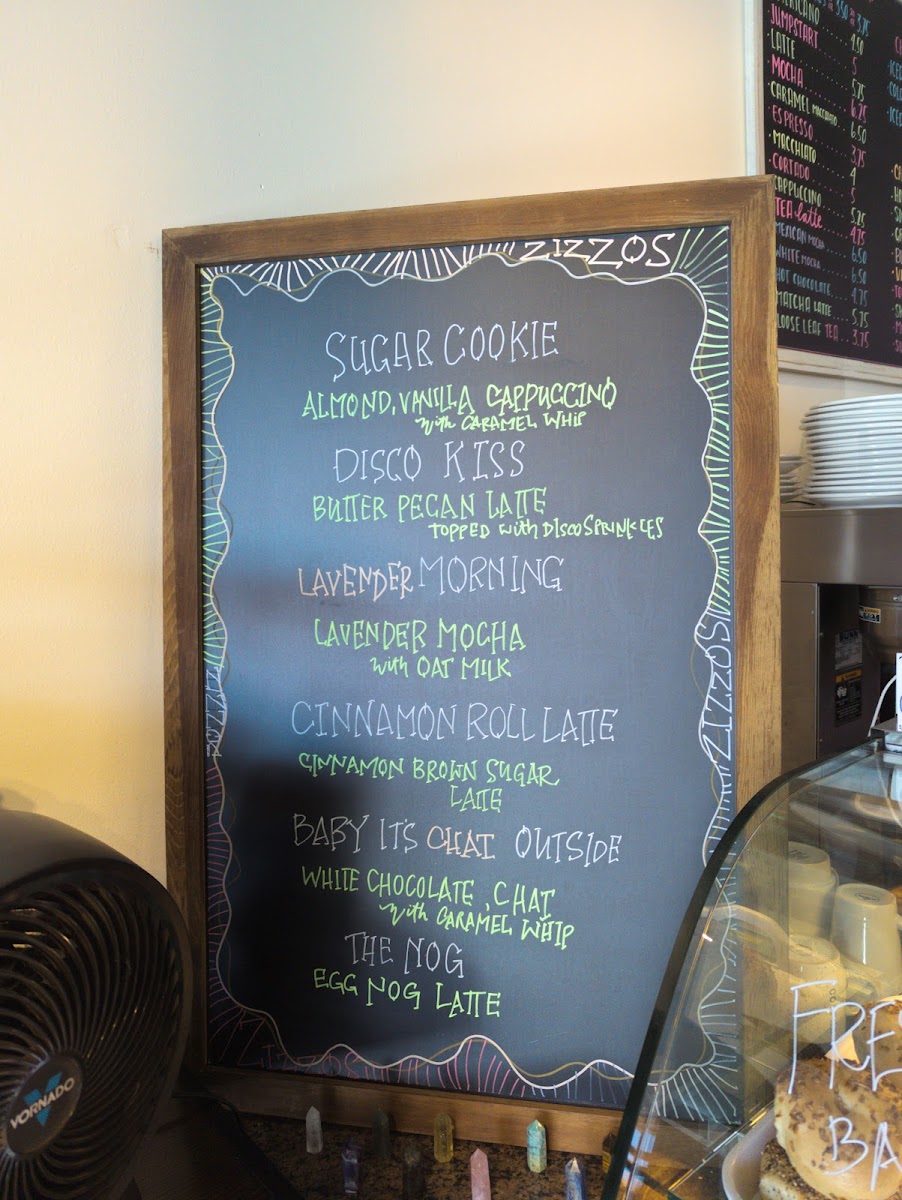 ZIZZOS
SUGAR COOKIE
ALMOND, VANILLA CAPPUCCINO
with CARAMEL WHIP
DISCO KISS
BUTTER PECAN LATTE
TOPPED with DISCO SPRINKLES
LAVENDER MORNING
LAVENDER MOCHA
with OAT MILK
CINNAMON ROLL LATTE
CINNAMON BROWN SUGAR
LATTE
BABY IT'S CHAI OUTSIDE
WHITE CHOCOLATE, CHAI
with CARAMEL WHIP
THE NOG
EGG NOG LATTE
ZIZZOS
ZIZZOS
ZIZZOS
JUMPSTART 4.50
LATTE 5
MOCHA 5.75
CARAMEL MACCHIATO 6.25
ESPRESSO 6.50
MACCHIATO 3.75
CORTADO 4
CAPPUCCINO 5
TEA latte 5.25
MEXICAN MOCHA 4.75
WHITE MOCHA 6.50
HOT CHOCOLATE 6.50
MATCHA LATTE 4.75
LOOSE LEAF TEA 5.75
3.75
VORNADO
FRE
BA